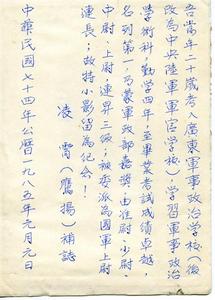 昔年二十歲考入廣東軍事政治學校(後
改為中央陸軍軍官學校)學習軍事政治
學術科,勤學四年,至畢業考試成績卓越,
名列第一,乃蒙軍政部嘉獎,由准尉、少尉、
中尉、上尉連昇三級,被委派為國軍上尉
連長;故特小影留為紀念!
凌霄(鷹揚)補誌
中華民國七十四年公曆一九八五年元月元日